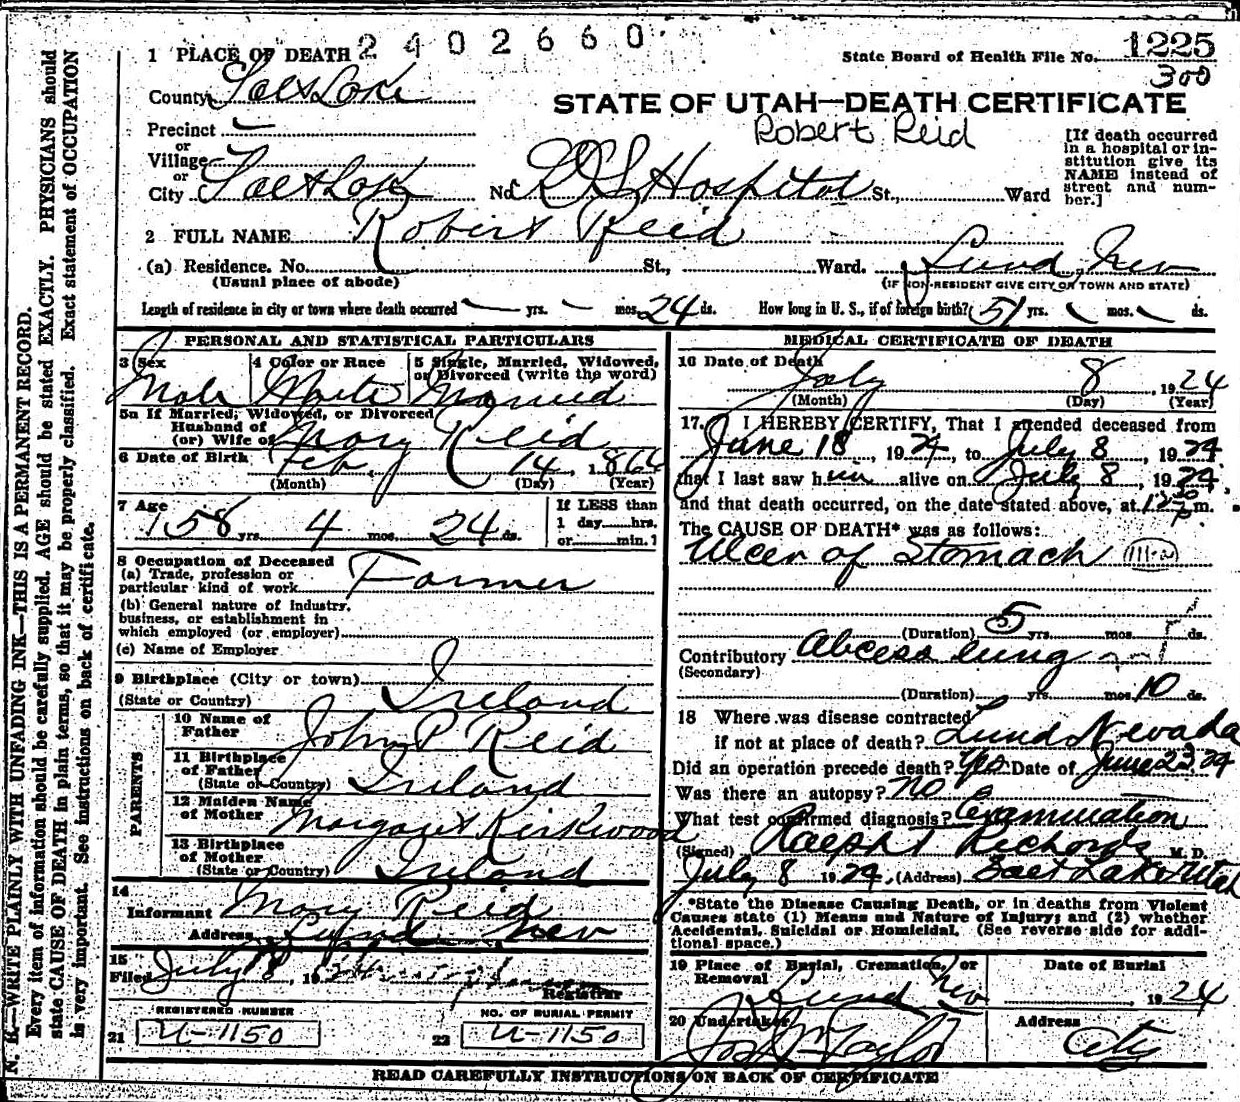 2402660
1 PLACE OF DEATH
State Board of Health File No. 1225
300
County Salt Lake
STATE OF UTAH—DEATH CERTIFICATE
Robert Reid
Precinct
or
Village
or
City Salt Lake No. LDS Hospital St., Ward
[If death occurred
in a hospital or in-
stitution give its
NAME instead of
street and num-
ber.]
2 FULL NAME Robert Reid
(a) Residence. No. St., Ward. Lund, Nev
(Usual place of abode) (IF NON-RESIDENT GIVE CITY OR TOWN AND STATE)
Length of residence in city or town where death occurred — yrs. — mos. 24 ds. How long in U. S., if of foreign birth? 51 yrs. mos. ds.
PERSONAL AND STATISTICAL PARTICULARS
3 Sex 4 Color or Race 5 Single, Married, Widowed,
or Divorced (write the word)
Male White Married
5a If Married, Widowed, or Divorced
Husband of
(or) Wife of Mary Reid
6 Date of Birth Feb. 14, 1866
(Month) (Day) (Year)
7 Age 58 yrs. 4 mos. 24 ds.
If LESS than
1 day......hrs.
or......min.?
8 Occupation of Deceased
(a) Trade, profession or
particular kind of work Farmer
(b) General nature of Industry,
business, or establishment in
which employed (or employer)
(c) Name of Employer
9 Birthplace (City or town)
(State or Country) Ireland
PARENTS
10 Name of
Father John P Reid
11 Birthplace
of Father
(State or Country) Ireland
12 Maiden Name
of Mother Margaret Kirkwood
13 Birthplace
of Mother
(State or Country) Ireland
14
Informant Mary Reid
Address Lund Nev
15
Filed July 8, 19
Registrar
REGISTERED NUMBER NO. OF BURIAL PERMIT
21 U-1150 22 U-1150
MEDICAL CERTIFICATE OF DEATH
16 Date of Death
July 8, 1924
(Month) (Day) (Year)
17. I HEREBY CERTIFY, That I attended deceased from
June 18, 1924, to July 8, 1924
that I last saw him alive on July 8, 1924,
and that death occurred, on the date stated above, at m.
The CAUSE OF DEATH* was as follows:
Ulcer of Stomach 111-a
(Duration) 5 yrs. mos. ds.
Contributory Abcess lung
(Secondary)
(Duration) yrs. mos. 10 ds.
18 Where was disease contracted
if not at place of death? Lund Nevada
Did an operation precede death? Yes Date of June 23, 24
Was there an autopsy? No
What test confirmed diagnosis? Examination
(Signed) Ralph T Richards M. D.
July 8 1924, (Address) Salt Lake Utah
*State the Disease Causing Death, or in deaths from Violent
Causes state (1) Means and Nature of Injury; and (2) whether
Accidental, Suicidal or Homicidal. (See reverse side for addi-
tional space.)
19 Place of Burial, Cremation, or
Removal
Date of Burial
Lund Nev 1924
20 Undertaker Address
Jos Wm Taylor City
READ CAREFULLY INSTRUCTIONS ON BACK OF CERTIFICATE
N. B.—WRITE PLAINLY WITH UNFADING INK—THIS IS A PERMANENT RECORD.
Every item of information should be carefully supplied. AGE should be stated EXACTLY. PHYSICIANS should
state CAUSE OF DEATH in plain terms, so that it may be properly classified. Exact statement of OCCUPATION
is very important. See instructions on back of certificate.